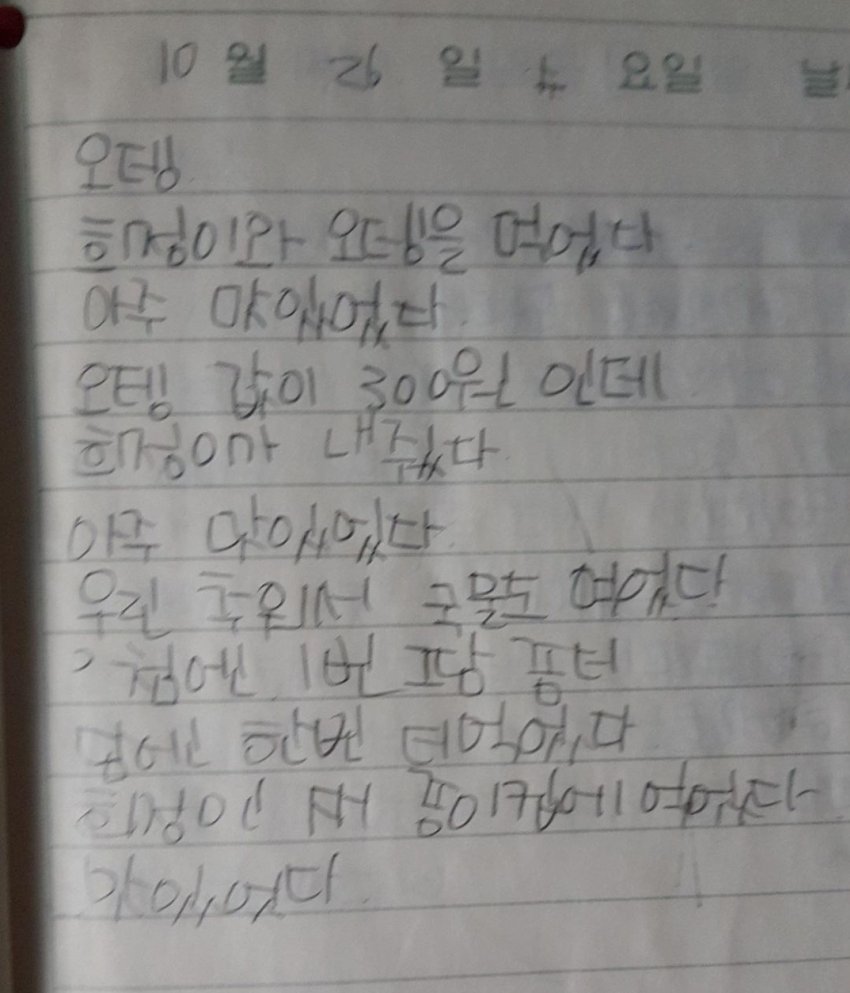 10 월 26 일 요일
오뎅
희정이와 오뎅을 먹었다
아주 맛있었다.
오뎅 값이 300원 인데
희정이가 내줬다.
아주 맛있었다.
우린 추워서 국물도 먹었다
1번
한번 더먹었다.
희정인 종이컵에 먹었다.
맛있었다.